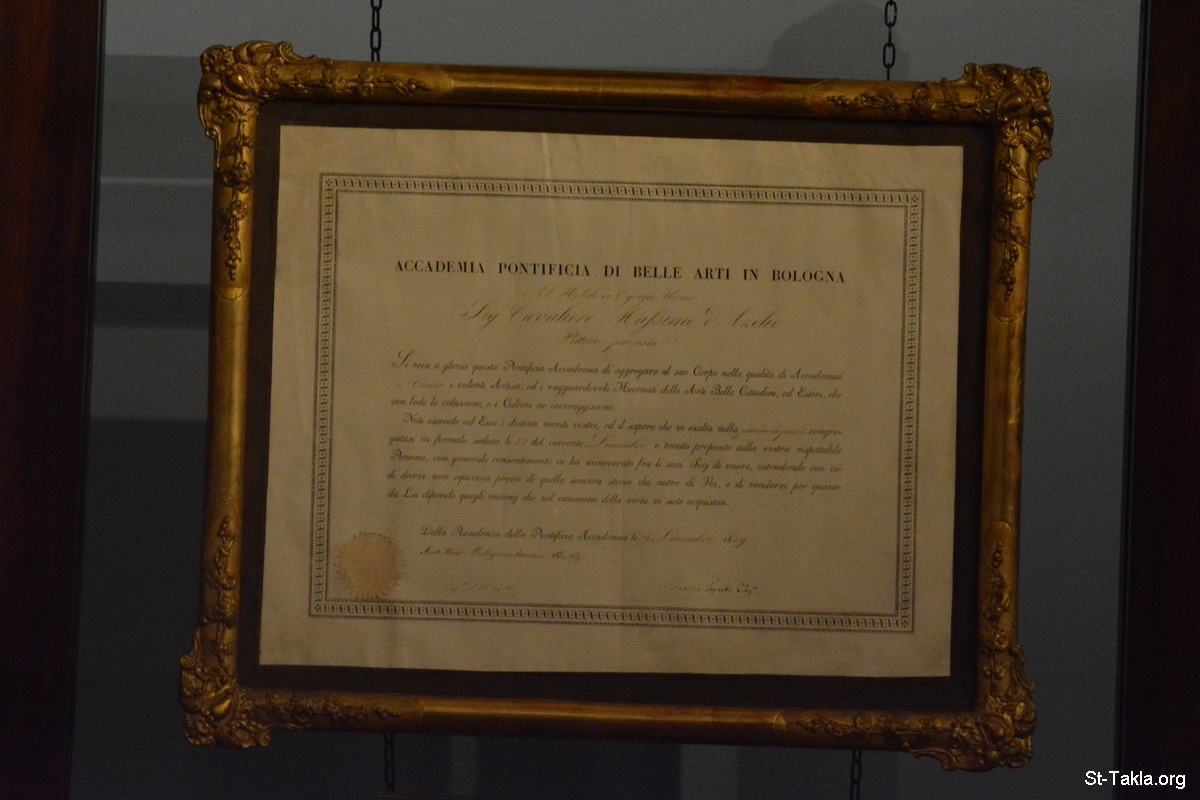 ACCADEMIA PONTIFICIA DI BELLE ARTI IN BOLOGNA
Al Nobile
Sig. Cavaliere Massimo d'Azelio
Pittore
Si reca a gloria questa Pontificia Accademia di aggregare al suo Corpo nella qualità di Accademici
i valenti Artisti, ed i ragguardevoli Mecenati delle Arti Belle Cittadini, ed Esteri, che
con lode le coltivano, o i Cultori ne incoraggiscono.
Noti essendo ad Essa i distinti meriti vostri, ed il sapere che vi esalta nella congre-
gatasi in formale seduta li 22 del corrente Decembre e tenuto proposito sulla vostra rispettabile
Persona, con generale consentimento vi ha annoverato fra li suoi Socj di onore, intendendo con ciò
di darvi non equivoca prova di quella sincera stima che nutre di Voi, e di rendervi per quanto
da Lei dipende quegli encomj che nel cammino della virtù vi siete acquistati.
Dalla Residenza della Pontificia Accademia li 29 Decembre 1839
St-Takla.org